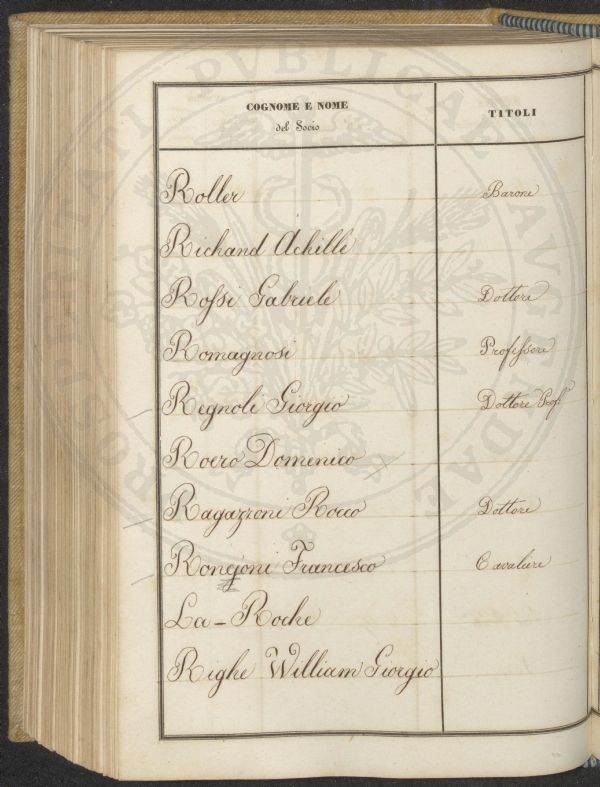 COGNOME E NOME
del Socio
TITOLI
Roller Barone
Richand Achille
Rossi Gabriele Dottore
Romagnosi Professore
Regnoli Giorgio Dottore Prof.
Roero Domenico
Ragazzoni Rocco Dottore
Rongioni Francesco Cavaliere
La-Roche
Righe William Giorgio
PROSPERITATI PVBLICAE AVGENDAE